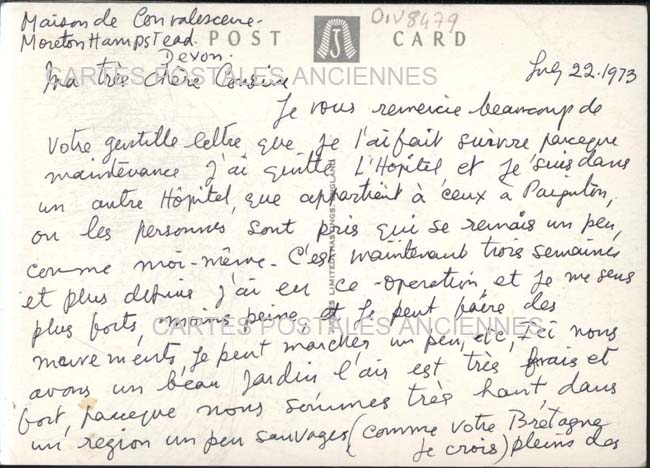 Maison de Convalescence.
MoretonHampstead.
Devon.
POST CARD
OIV8479
July 22.1973
CARTES POSTALES ANCIENNES
Ma très chère Cousine
Je vous remercie beaucoup de
votre gentille lettre, que je l'ai fait suivre parceque
maintenance j'ai quitté L'Hôpital et je suis dans
un autre Hôpital, que appartient à ceux à Paignton,
ou les personnes sont pris qui se remais un peu,
comme moi-même. C'est maintenant trois semaines
et plus depuis j'ai eu ce operation, et je me sens
plus forts, moins peine, et je peut faire des
CARTES POSTALES ANCIENNES
mouvements, je peut marcher un peu, etc, Ici nous
avons un beau jardin l'air est très frais et
fort, parceque nous sommes très haut, dans
un region un peu sauvages (comme votre Bretagne
je crois) pleins des
LIMITED, HASTINGS, ENGLAND